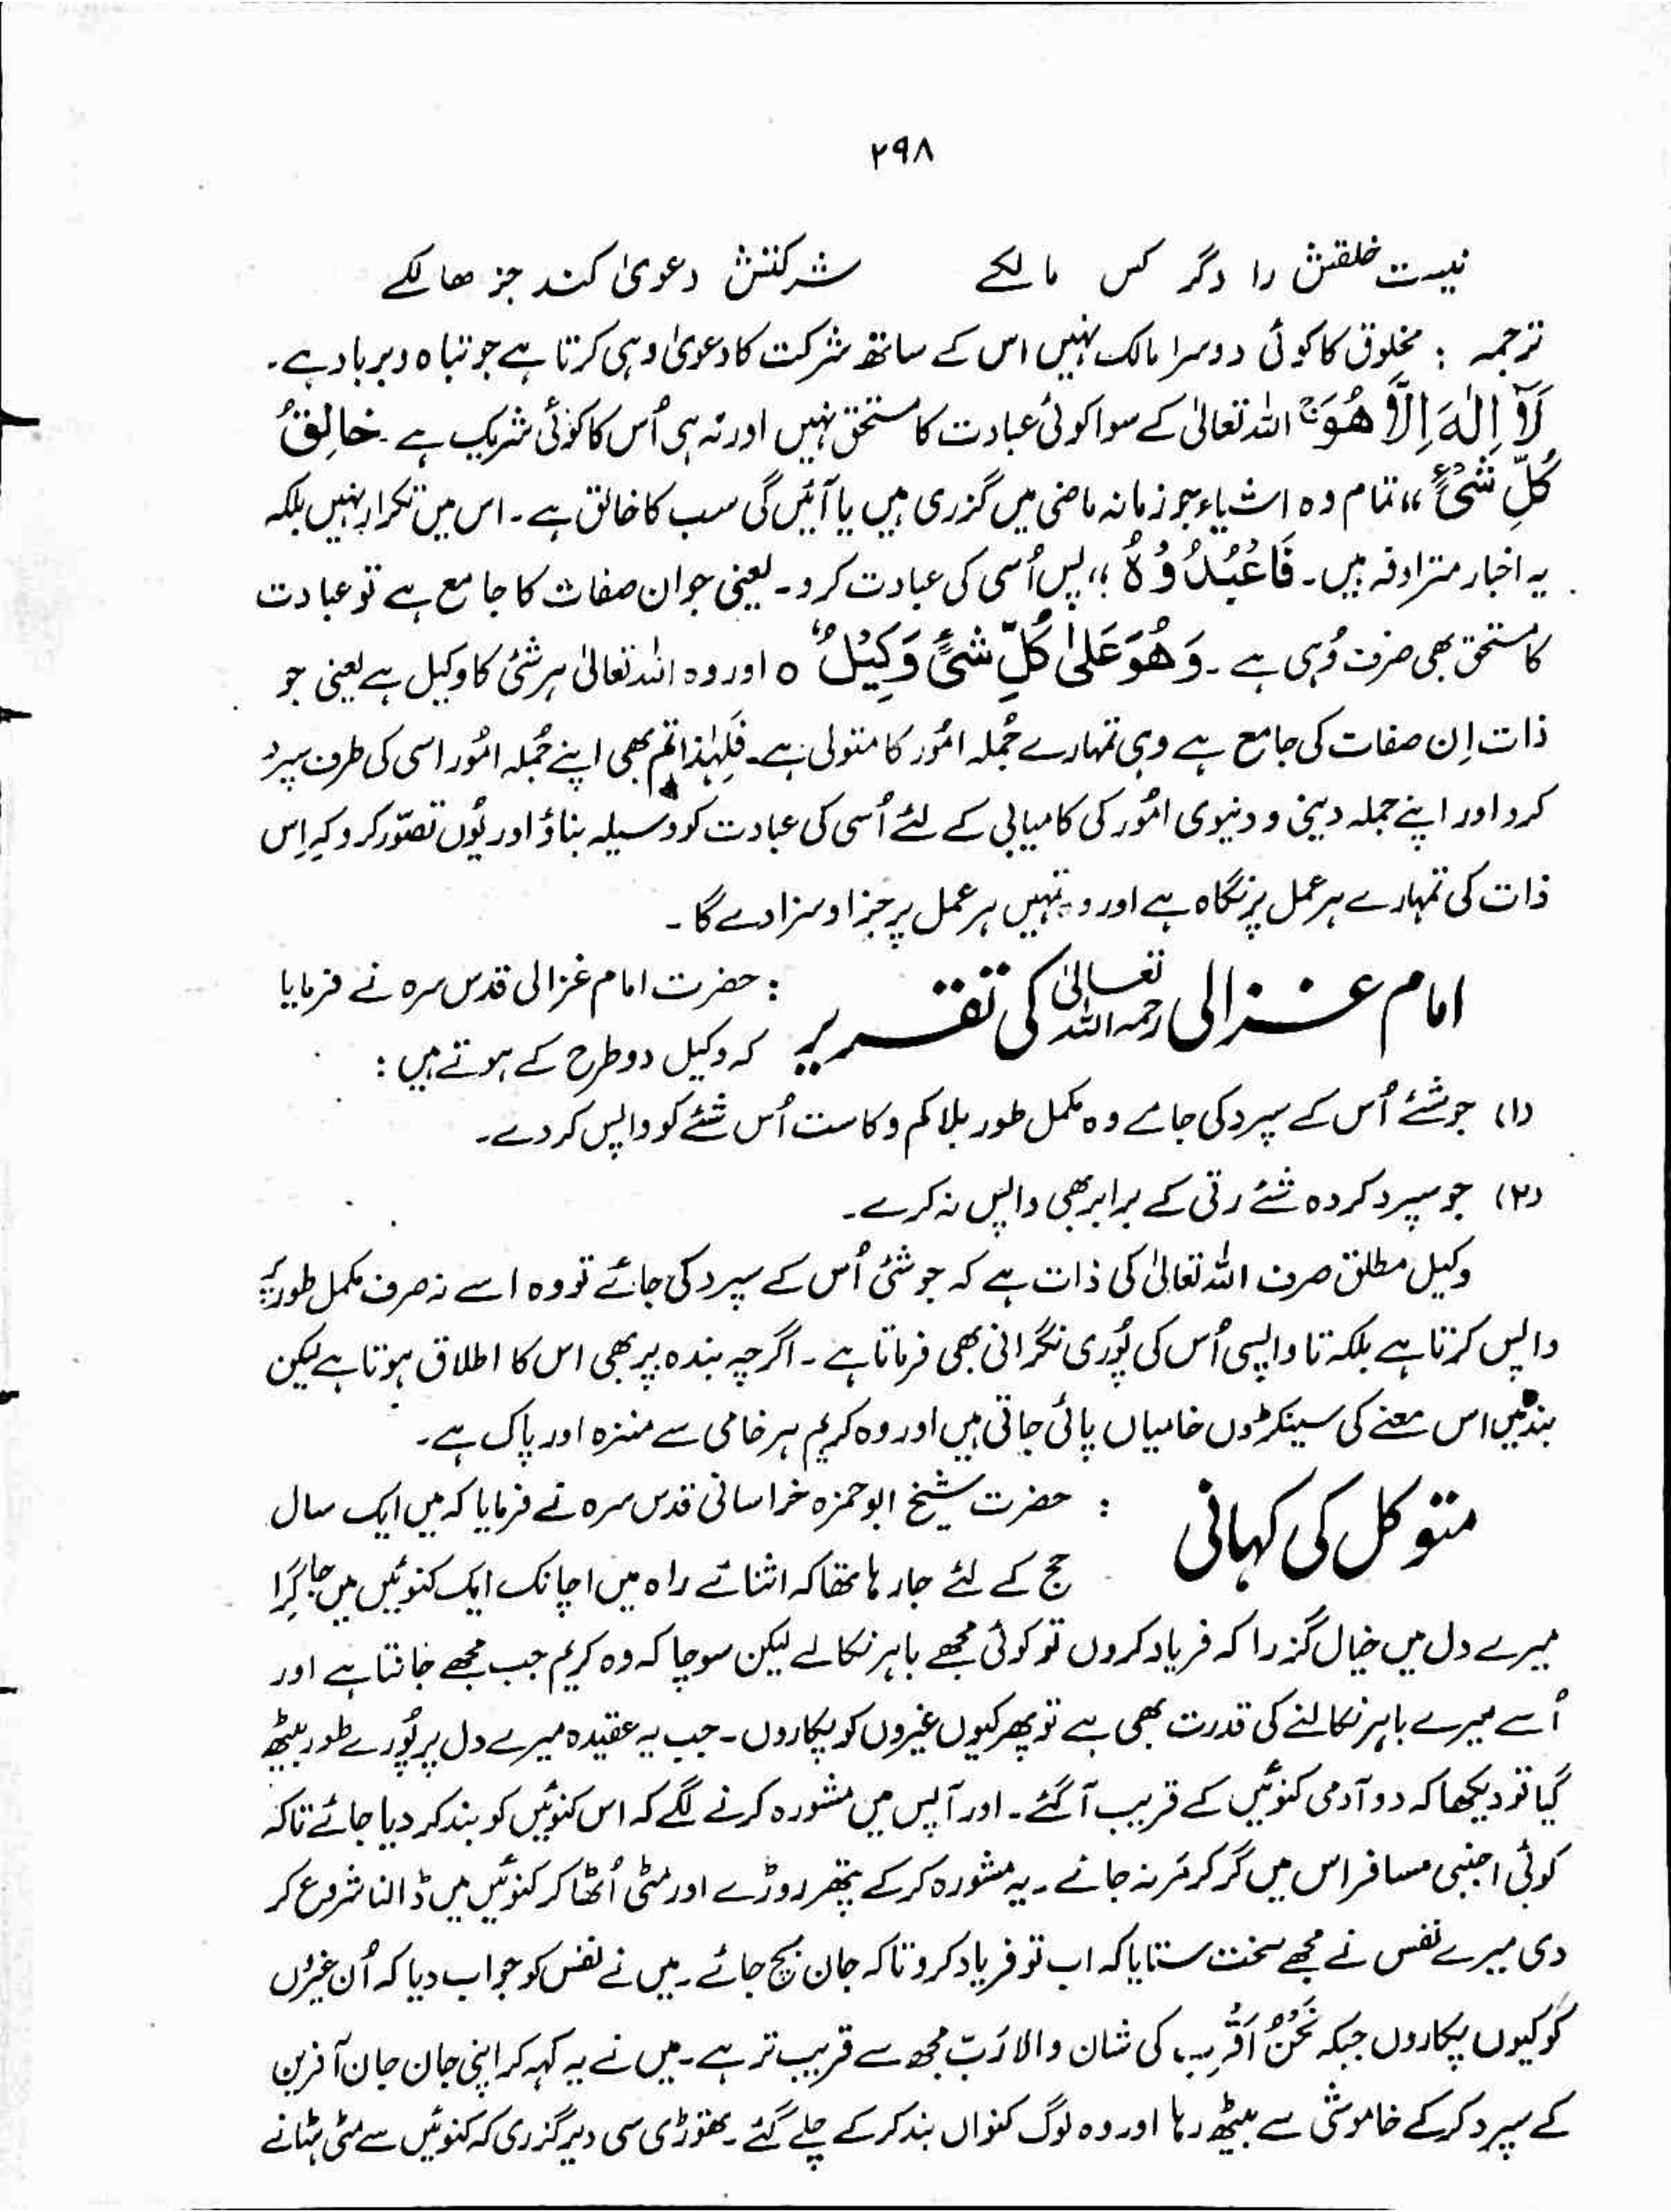 ۲۹۸
نیست خلقش را دگر کس مالکے شرکتش دعویٰ کند جز ھالکے
ترجمہ : مخلوق کا کوئی دوسرا مالک نہیں اس کے ساتھ شرکت کا دعویٰ وہی کرتا ہے جو تباہ و برباد ہے۔
لَآ اِلٰهَ اِلَّا هُوَۚ اللہ تعالیٰ کے سوا کوئی عبادت کا مستحق نہیں اور نہ ہی اُس کا کوئی شریک ہے۔ خَالِقُ
كُلِّ شَیْءٍ ،، تمام وہ اشیاء جو زمانہ ماضی میں گزری ہیں یا آئیں گی سب کا خالق ہے۔ اس میں تکرار نہیں بلکہ
یہ اخبار مترادفہ ہیں۔ فَاعْبُدُوْهُ ،، پس اُسی کی عبادت کرو۔ یعنی جو ان صفات کا جامع ہے تو عبادت
کا مستحق بھی صرف وُہی ہے۔ وَهُوَ عَلٰى كُلِّ شَیْءٍ وَكِيْلٌ ہ اور وہ اللہ تعالیٰ ہر شئ کا وکیل ہے یعنی جو
ذات اِن صفات کی جامع ہے وہی تمہارے جُملہ امُور کا متولی ہے۔ فَلِہٰذا تم بھی اپنے جُملہ امُور اسی کی طرف سپرد
کرو اور اپنے جملہ دینی و دنیوی امُور کی کامیابی کے لئے اُسی کی عبادت کو وسیلہ بناؤ اور یُوں تصوّر کرو کہ اِس
ذات کی تمہارے ہر عمل پر نگاہ ہے اور وہ تمہیں ہر عمل پر جزا و سزا دے گا۔
امام غزالی رحمہ اللہ تعالیٰ کی تقریر : حضرت امام غزالی قدس سرہ نے فرمایا
کہ وکیل دو طرح کے ہوتے ہیں :
(۱) جو شئے اُس کے سپرد کی جائے وہ مکمل طور بلا کم و کاست اُس شئے کو واپس کر دے۔
(۲) جو سپرد کردہ شئے رتی کے برابر بھی واپس نہ کرے۔
وکیل مطلق صرف اللہ تعالیٰ کی ذات ہے کہ جو شئ اُس کے سپرد کی جائے تو وہ اسے نہ صرف مکمل طور پر
واپس کرتا ہے بلکہ تا واپسی اُس کی پُوری نگرانی بھی فرماتا ہے۔ اگرچہ بندہ پر بھی اس کا اطلاق ہوتا ہے لیکن
بندہ میں اس معنے کی سینکڑوں خامیاں پائی جاتی ہیں اور وہ کریم ہر خامی سے منزہ اور پاک ہے۔
متوکل کی کہانی : حضرت شیخ ابو حمزہ خراسانی قدس سرہ نے فرمایا کہ میں ایک سال
حج کے لئے جا رہا تھا کہ اثنائے راہ میں اچانک ایک کنوئیں میں جا گِرا
میرے دل میں خیال گزرا کہ فریاد کروں تو کوئی مجھے باہر نکالے لیکن سوچا کہ وہ کریم جب مجھے جانتا ہے اور
اُسے میرے باہر نکالنے کی قدرت بھی ہے تو پھر کیوں غیروں کو پکاروں۔ جب یہ عقیدہ میرے دل پر پُورے طور بیٹھ
گیا تو دیکھا کہ دو آدمی کنوئیں کے قریب آگئے۔ اور آپس میں مشورہ کرنے لگے کہ اس کنوئیں کو بند کر دیا جائے تاکہ
کوئی اجنبی مسافر اس میں گر کر مَر نہ جائے۔ یہ مشورہ کر کے پتھر روڑے اور مٹی اُٹھا کر کنوئیں میں ڈالنا شروع کر
دی میرے نفس نے مجھے سخت ستایا کہ اب تو فریاد کرو تاکہ جان بچ جائے۔ میں نے نفس کو جواب دیا کہ اُن غیرُوں
کو کیوں پکاروں جبکہ نَحْنُ اَقْرَب کی شان والا رَبّ مجھ سے قریب تر ہے۔ میں نے یہ کہہ کر اپنی جان جان آفرین
کے سپرد کر کے خاموشی سے بیٹھ رہا اور وہ لوگ کنواں بند کر کے چلے گئے۔ تھوڑی سی دیر گزری کہ کنوئیں سے مٹی ہٹانے